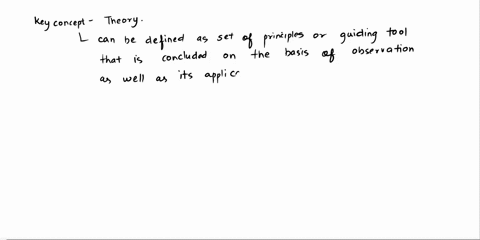 Key concept - Theory.
can be defined as set of principles or guiding tool
that is concluded on the basis of observation
as well as its applic